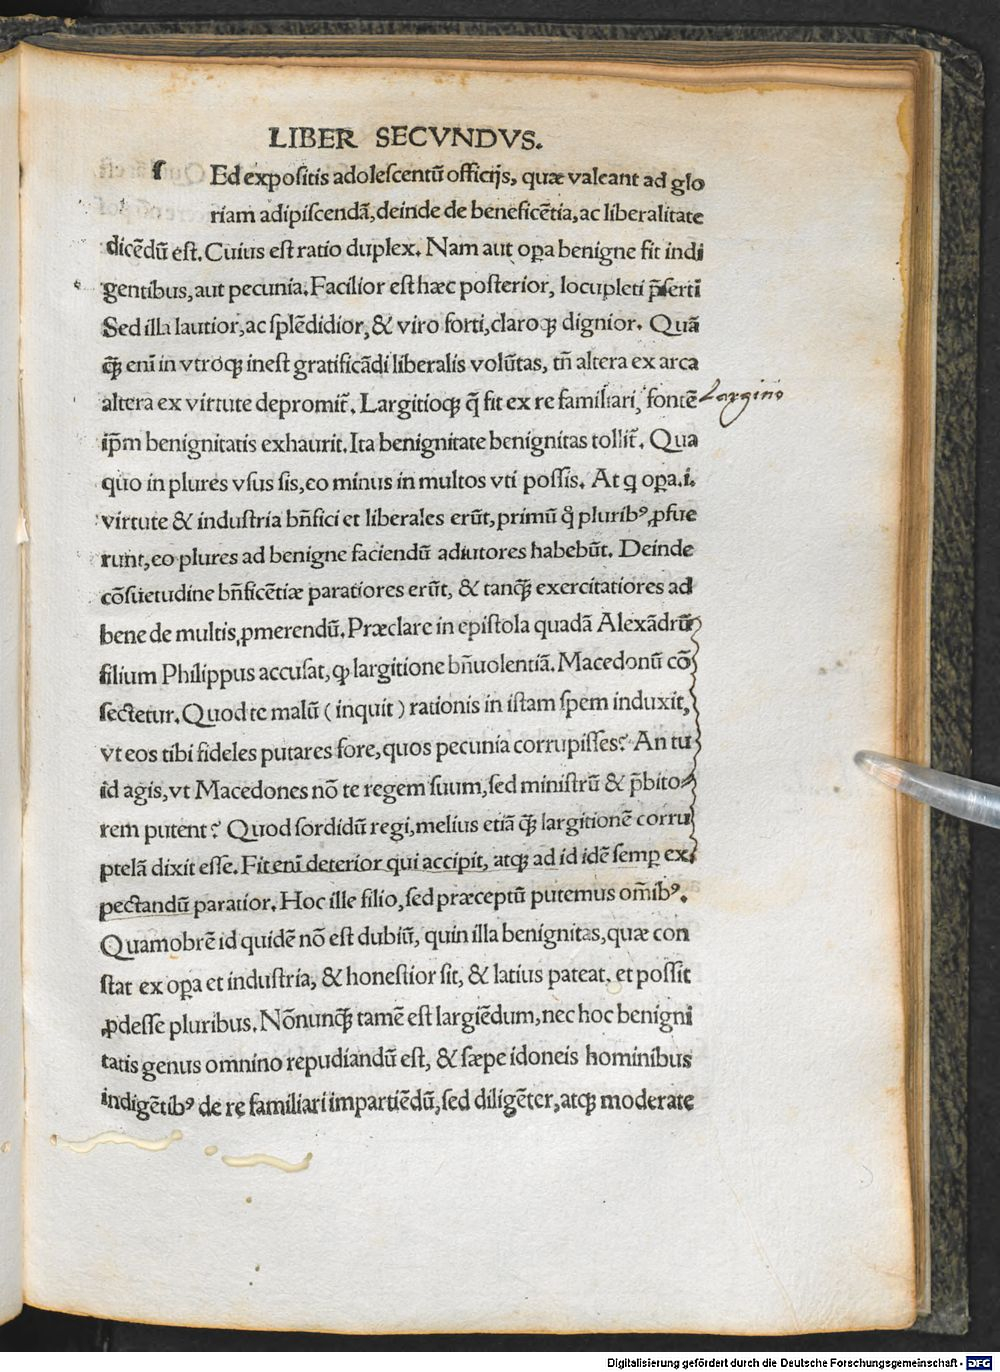 LIBER SECVNDVS.
ſ Ed expoſitis adoleſcentū officijs, quæ valeant ad glo
riam adipiſcendā, deinde de beneficētia, ac liberalitate
dicēdū eſt. Cuius eſt ratio duplex. Nam aut oꝑa benigne fit indi
gentibus, aut pecunia. Facilior eſt hæc poſterior, locupleti p̄ſerti
Sed illa lautior, ac ſplēdidior, & viro forti, claroqꝫ dignior. Quā
qꝫ̄ enī in vtroqꝫ ineſt gratificādi liberalis volūtas, tn̄ altera ex arca
altera ex virtute depromit̄. Largitioqꝫ q̄ fit ex re familiari, fontē
Largitio
ip̄m benignitatis exhaurit. Ita benignitate benignitas tollit̄. Qua
quo in plures vſus ſis, eo minus in multos vti poſſis. At q oꝑa .i.
virtute & induſtria bn̄fici et liberales erūt, primū qͦ pluribꝰ ꝓfue
runt, eo plures ad benigne faciendū adiutores habebūt. Deinde
cōſuetudine bn̄ficētiæ paratiores erūt, & tanqꝫ̄ exercitatiores ad
bene de multis ꝓmerendū. Præclare in epiſtola quadā Alexādrū
filium Philippus accuſat, ꝙ largitione bn̄uolentiā. Macedonū cō
ſectetur. Quod te malū (inquit) rationis in iſtam ſpem induxit,
vt eos tibi fideles putares fore, quos pecunia corrupiſſes? An tu
id agis, vt Macedones nō te regem ſuum, ſed miniſtrū & p̄bito-
rem putent? Quod ſordidū regi, melius etiā qꝫ̄ largitionē corru
ptelā dixit eſſe. Fit enī deterior qui accipit, atqꝫ ad id idē ſemꝑ ex
pectandū paratior. Hoc ille filio, ſed præceptū putemus om̄ibꝰ.
Quamobrē id quidē nō eſt dubiū, quin illa benignitas, quæ con
ſtat ex oꝑa et induſtria, & honeſtior ſit, & latius pateat, et poſſit
ꝓdeſſe pluribus. Nōnunqꝫ̄ tamē eſt largiēdum, nec hoc benigni
tatis genus omnino repudiandū eſt, & ſæpe idoneis hominibus
indigētibꝰ de re familiari impartiēdū, ſed diligēter, atqꝫ moderate
Digitalisierung gefördert durch die Deutsche Forschungsgemeinschaft - DFG